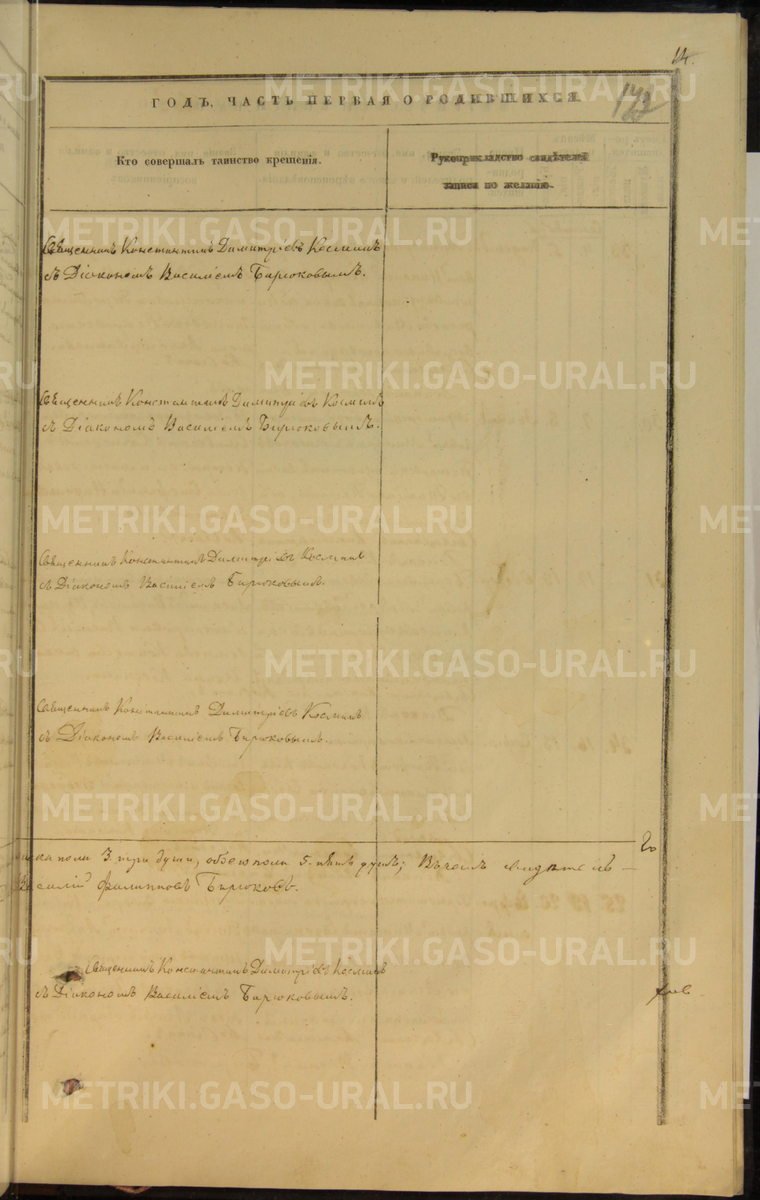 14.
172
ГОДЪ, ЧАСТЬ ПЕРВАЯ О РОДИВШИХСЯ.
Кто совершалъ таинство крещенія.
Рукоприкладство свидѣтелей
записи по желанію.
Священникъ Константинъ Димитріевъ Косминъ
съ Діакономъ Василіемъ Бирюковымъ.
Священникъ Константинъ Димитріевъ Косминъ
съ Діакономъ Василіемъ Бирюковымъ.
Священникъ Константинъ Димитріевъ Косминъ
съ Діакономъ Василіемъ Бирюковымъ.
Священникъ Константинъ Димитріевъ Косминъ
съ Діакономъ Василіемъ Бирюковымъ.
пола 3. три души, обоего пола 5. пять душъ; Въ чемъ
Филипповъ Бирюковъ.
Священникъ Константинъ Димитріевъ Косминъ
съ Діакономъ Василіемъ Бирюковымъ.
METRIKI.GASO-URAL.RU